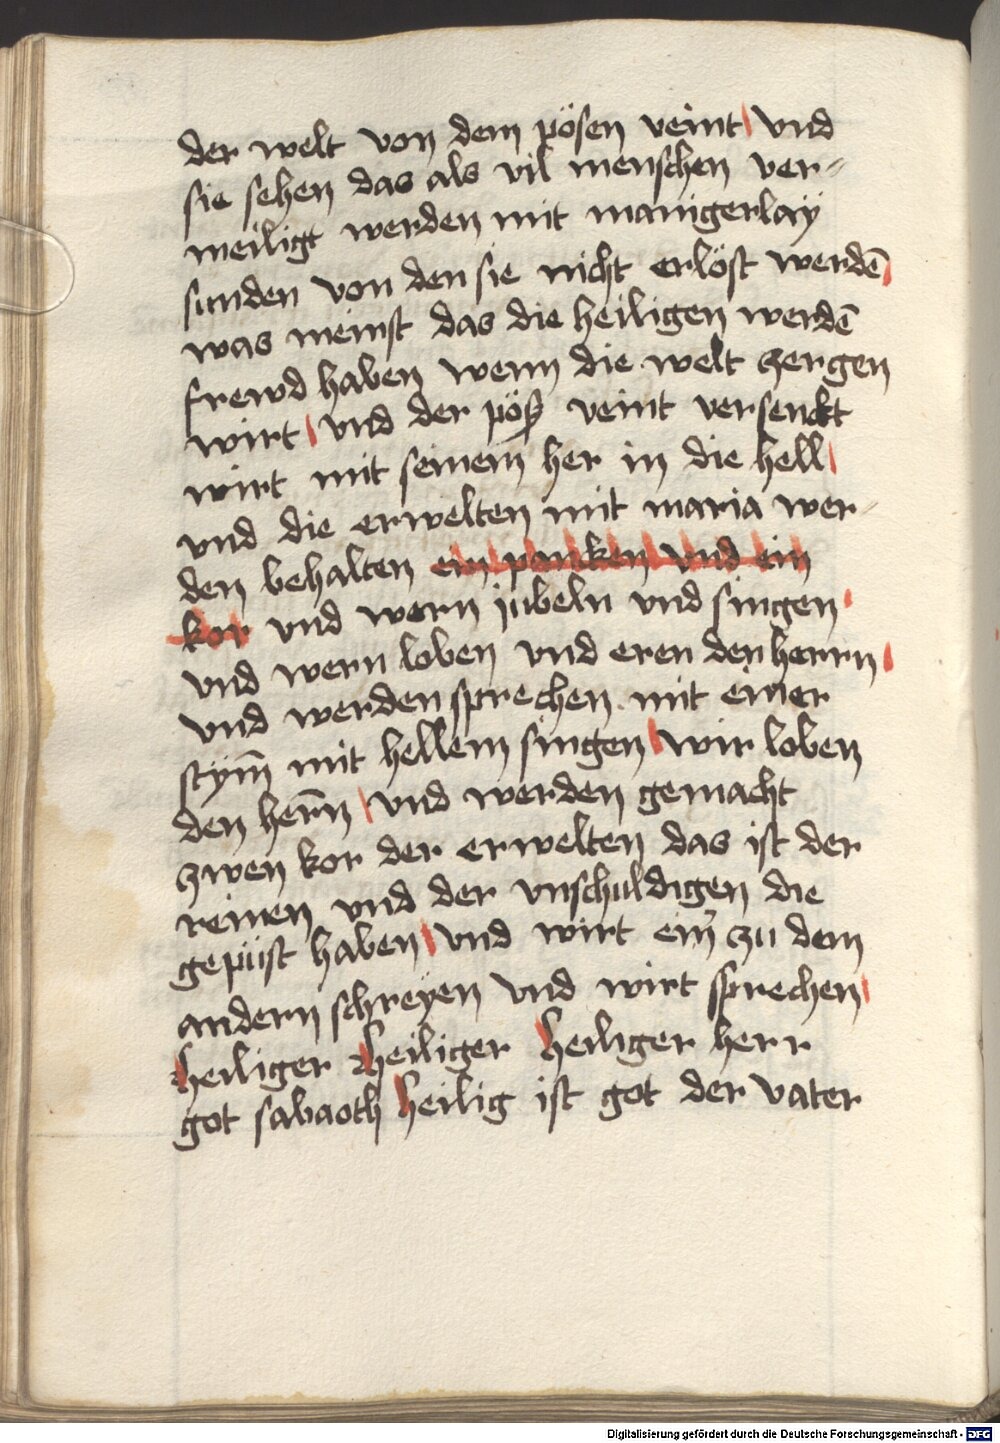 der welt von dem pösen veint vnd
sie sehen das als vil menschen ver⸗
meiligt werden mit manigerlay
sunden von den sie nicht erlöst werdē
was meinst das die heiligen werdē
frewd haben wenn die welt zergen
wirt vnd der pöß veint versenckt
wirt mit seinem her in die hell
vnd die erwelten mit maria wer⸗
den behalten ein pauken vnd ein
kor vnd wern jubeln vnd singen
vnd wern loben vnd eren den herrn
vnd werden sprechen mit einer
stym̄ mit hellem singen wir loben
den her̄n vnd werden gemacht
zwen kor der erwelten das ist der
reinen vnd der vnschuldigen die
gepüst haben vnd wirt ein̄ zu dem
andern schreyen vnd wirt sprechen
heiliger heiliger heiliger herr
got sabaoth heilig ist got der vater
Digitalisierung gefördert durch die Deutsche Forschungsgemeinschaft - DFG